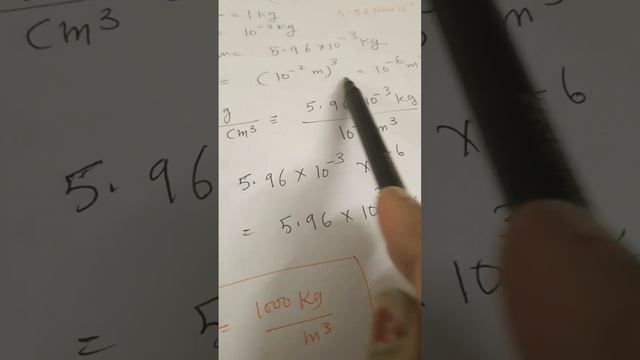 = 1 kg
= 10⁻³ kg
m = 5.96 × 10⁻³ kg
= (10⁻² m)³ = 10⁻⁶ m
g/cm³ ≡ 5.96 10⁻³ kg / 10 m³
5.96 × 10⁻³ × ⁻⁶
= 5.96 × 10
= 1000 kg / m³